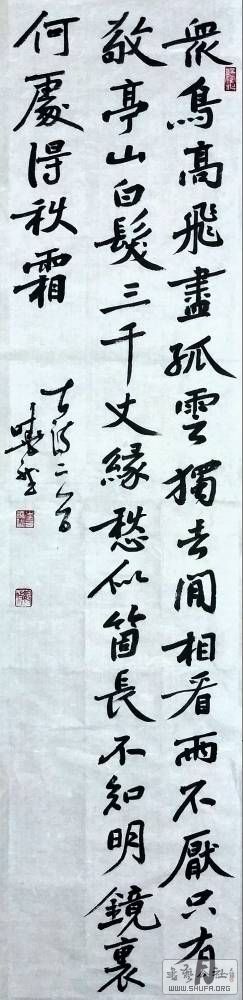 衆鳥高飛盡孤雲獨去閒相看兩不厭只有
敬亭山白髮三千丈緣愁似箇長不知明鏡裏
何處得秋霜
古詩二首
WWW.SHUFA.ORG